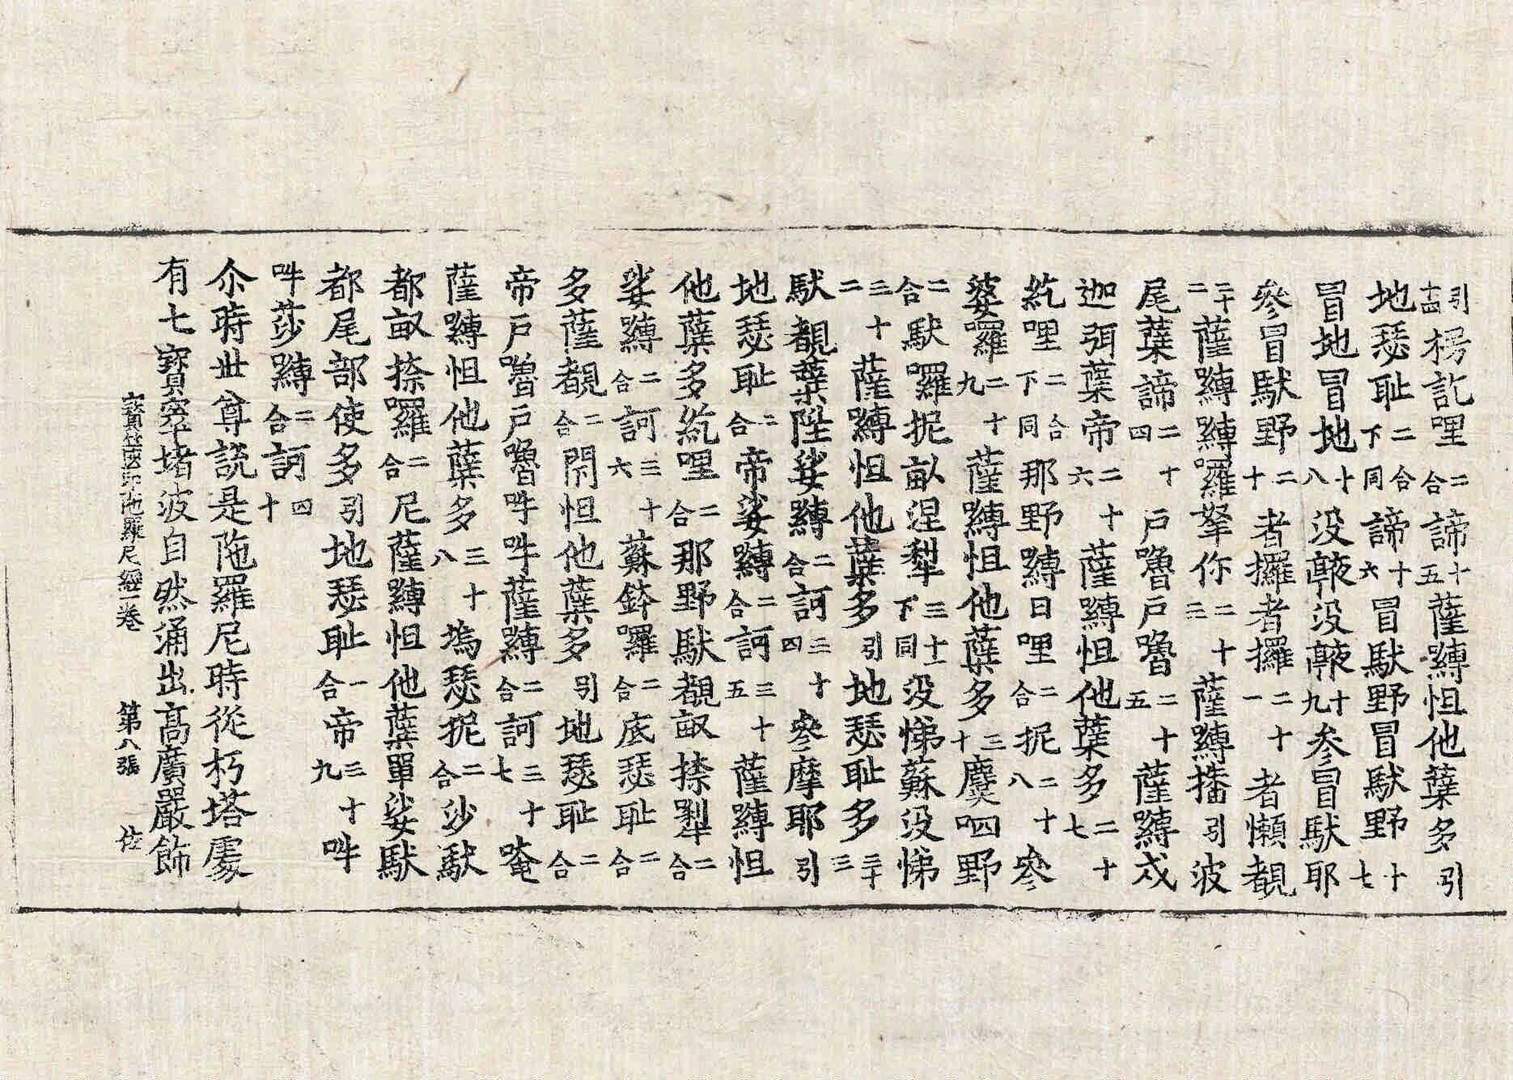 引十四楞訖哩二合諦十五薩嚩怛他蘖多引
地瑟耻二合下同諦十六冒馱野冒馱野十七
冒地冒地十八没𠆙没𠆙十九叅冒馱耶
參冒馱野二十者攞者攞二十一者懶覩
二十二薩嚩嚩囉拏你二十三薩嚩播引波
尾蘖諦二十四戶嚕戶嚕二十五薩嚩戍
迦弭蘖帝二十六薩嚩怛他蘖多二十七
紇哩二合下同那野嚩日哩二合抳二十八參
婆囉二十九薩嚩怛他蘖多三十虞呬野
二合馱囉抳畝涅犁三十一下同没悌蘇没悌
三十二薩嚩怛他蘖多引地瑟耻多三十三
馱覩蘖陛娑嚩二合訶三十四參摩耶引
地瑟耻二合帝娑嚩二合訶三十五薩嚩怛
他蘖多紇哩二合那野馱覩畝捺犁二合
娑嚩二合訶三十六蘇鉢囉二合底瑟耻二合
多薩覩二合閇怛他蘖多引地瑟耻二合
帝戶嚕戶嚕吽吽薩嚩二合訶三十七唵
薩嚩怛他蘖多三十八塢瑟抳二合沙馱
都畝捺囉二合尼薩嚩怛他蘖單娑馱
都尾部使多引地瑟耻一合帝三十九吽
吽莎嚩二合訶四十
尒時世尊說是陁羅尼時從朽塔處
有七寶窣堵波自然涌出高廣嚴飾
寶篋印陁羅尼經一卷 第八張 𠇾